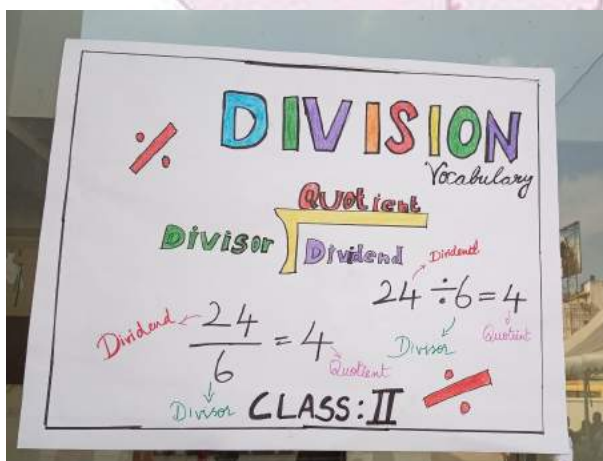 DIVISION
Vocabulary
Quotient
Divisor Dividend
Dividend
24 ÷ 6 = 4
Divisor Quotient
Dividend 24
6 = 4
Quotient
Divisor
CLASS: II